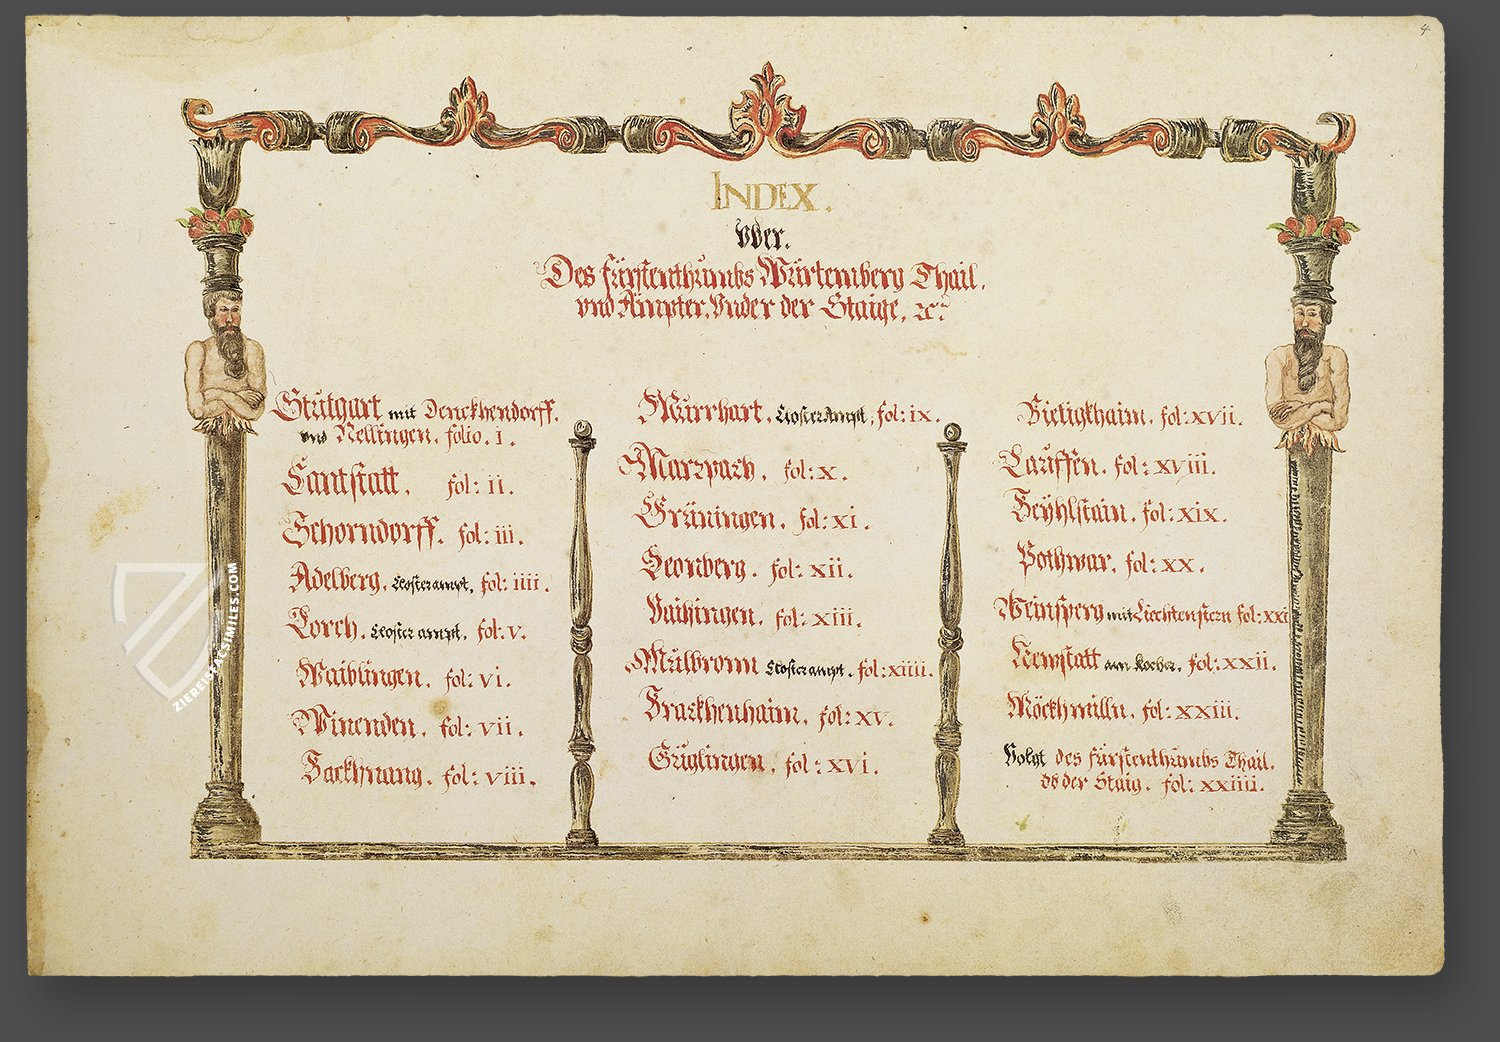 4
INDEX.
oder.
Des Fürstenthumbs Würtemberg Thail.
vnd Ämpter, Vnder der Staige, ꝛc.
Stůtgart mit Denckhendorff.
vnd Nellingen. folio. I.
Cantstatt. fol: ii.
Schorndorff. fol: iii.
Adelberg. Closterampt. fol: iiii.
Lorch. Closter ampt. fol: v.
Waiblingen. fol: vi.
Winenden. fol: vii.
Backhnang. fol: viii.
Murrhart. Closterampt. fol: ix.
Marppach. fol: x.
Grüningen. fol: xi.
Leonberg. fol: xii.
Vaihingen. fol: xiii.
Mulbronn Closterampt. fol: xiiii.
Brackhenhaim. fol: xv.
Güglingen. fol: xvi.
Bietigkhaim. fol: xvii.
Lauffen. fol: xviii.
Beyhlstain. fol: xix.
Bothwar. fol: xx.
Weinsperg mit Liechtenstern fol: xxi
Newstatt am Kocher. fol: xxii.
Möckhmilln. fol: xxiii.
Volgt des Fürstenthumbs Thail.
ob der Staig. fol: xxiiii.
ZIEREIS FACSIMILES.COM